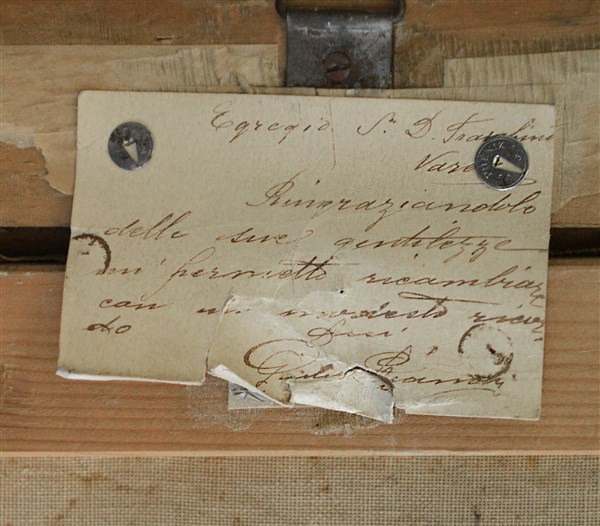 Egregio Sr. D. Fraschini
Varese
Ringraziandolo
delle sue gentilezze
mi permetto ricambiare
con un modesto ricor-
do